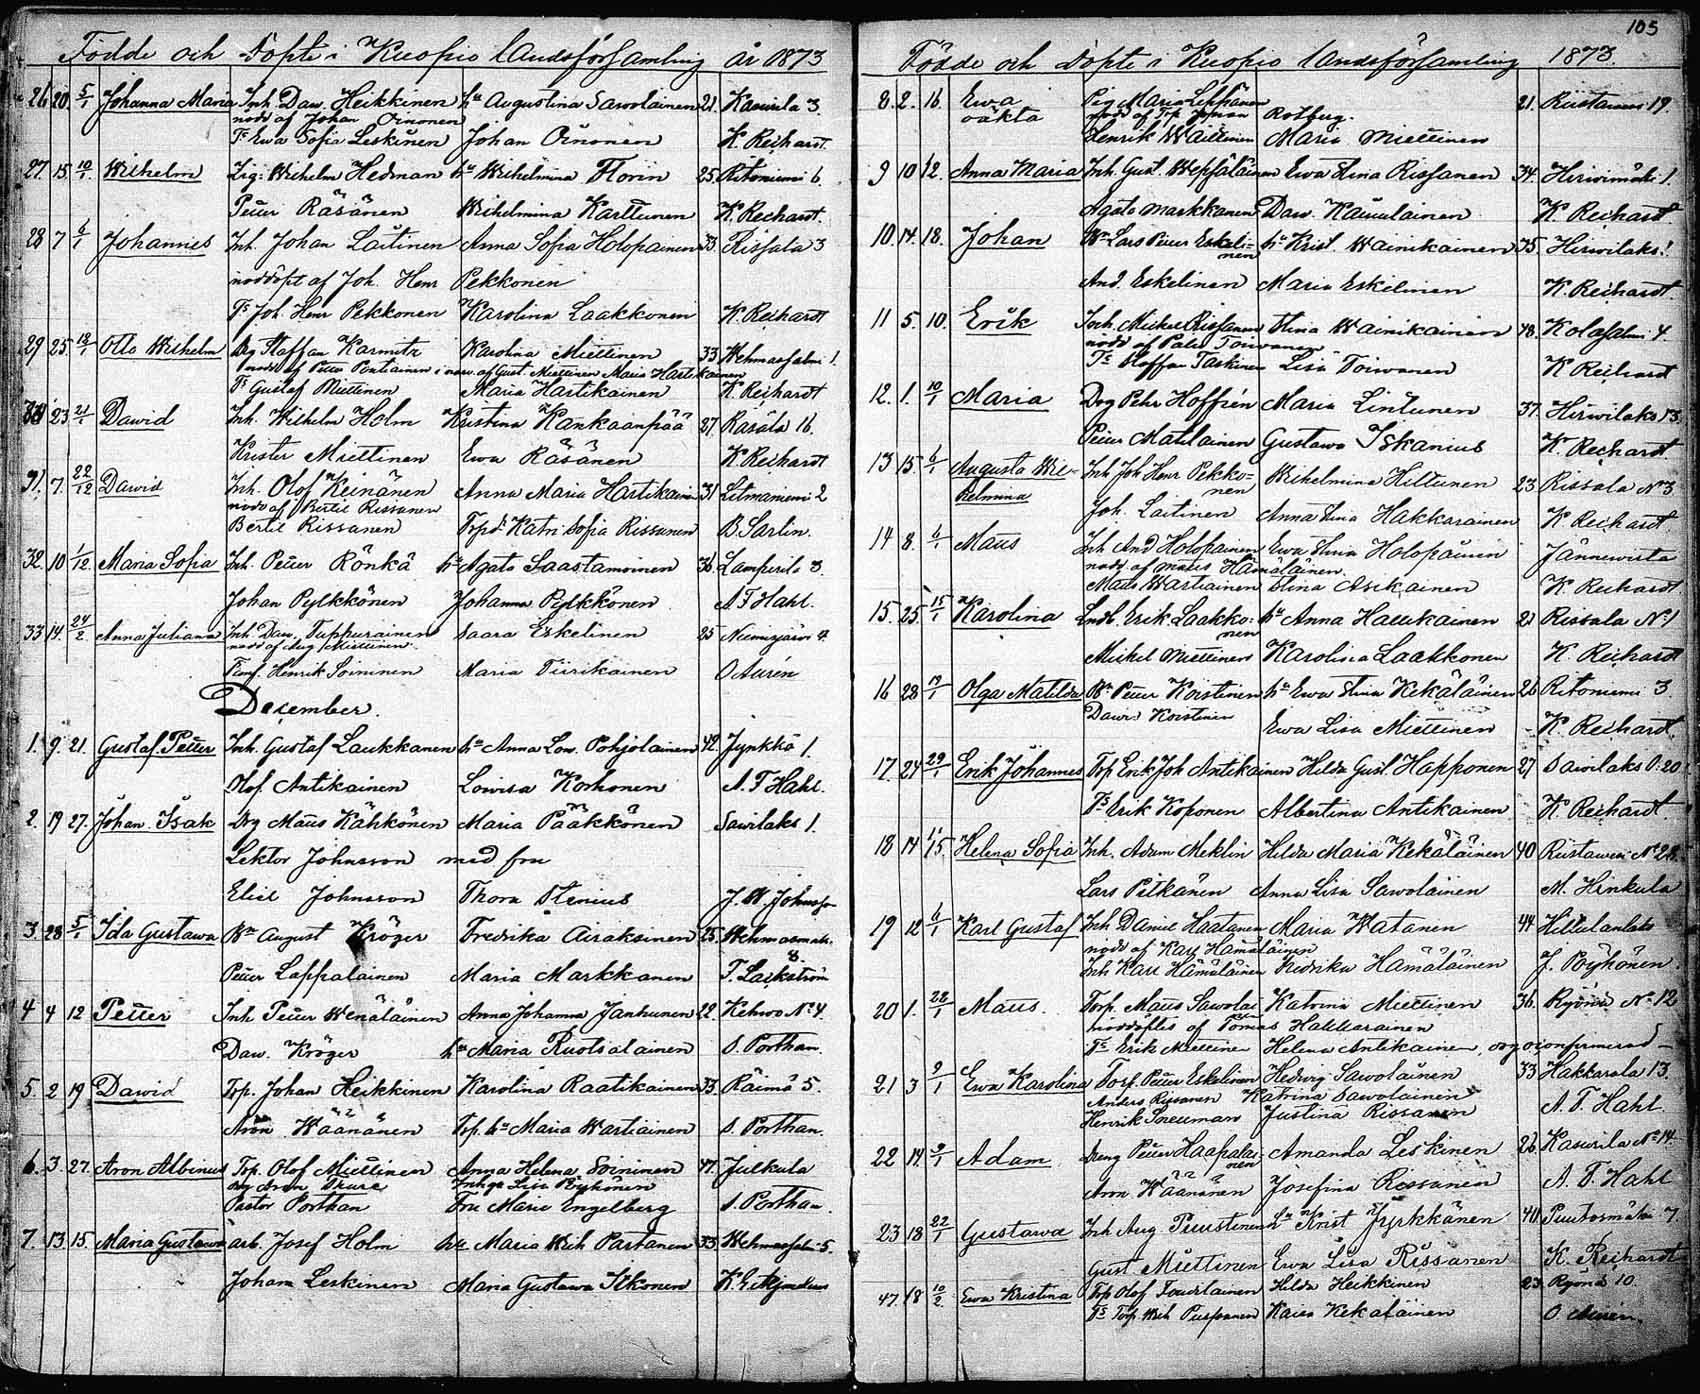 Födde och Döpte i Kuopio Landsförsamling år 1873
26 20 5/1 Johanna Maria Inh. Daw. Heikkinen hu Augustina Sawolainen 21. Kasurila 3.
nödd af Johan
Ts Ewa Sofia Leskinen Johan K. Reihardt.
27. 15 10/1 Wilhelm Wilhelm Hedman hu Wilhelmina Florin 25. Ritoniemi 6.
Petter Räsänen Wilhelmina Karttunen K. Reihardt.
28 7 6/1 Johannes Inh. Johan Laitinen Anna Sofia Holopainen 33. Rissala 3
nöddöpt af Joh. Henr Pekkonen
Ts Joh. Henr Pekkonen Karolina Laakkonen K. Reihardt
29 25. Otto Wilhelm Drg Staffan Karmitz Karolina Miettinen 33 Wehmassalmi 1.
nödd af Petter Pentiainen i närv. af Gust. Miettinen Maria Hartikainen
Ts Gustaf Miettinen Maria Hartikainen K. Reihardt
23 21/1 Dawid Inh. Wilhelm Holm Kristina Kankaanpää 27. Rasala 16.
Krister Miettinen Ewa Räsänen K. Reihardt
31. 7. 22/12 Dawid Inh. Olof Keinänen Anna Maria Hartikainen 31 Litmaniemi 2
nödd af Bertil Rissanen
Bertil Rissanen Torpds Katri Sofia Rissanen B. Sarlin.
32. 10 1/12 Maria Sofia Inh. Petter Rönkä hu Agata Saastamoinen 36. Lamperila 3.
Johan Pylkkönen Johanna Pylkkönen A F Hahl.
33 14. 24/2 Anna Juliana Inh. Daw. Tuppurainen Saara Eskelinen 25 Niemisjärvi 4.
nödd af Aug. Miettinen
Henrik Soininen Maria Tiirikainen O Aurén
December.
1. 9. 21. Gustaf Petter Inh. Gustaf Laukkanen hu Anna Lov. Pohjolainen 42. Jynkkä 1.
Olof Antikainen Lovisa Korhonen A. F Hahl.
2. 19 27. Johan Isak Drg Måns Kähkönen Maria Pääkkönen Sawilaks 1.
Lektor Johnsson med fru
Eliel Johnsson Thora Stenius J. W. Johnsson
3. 28 5/1 Ida Gustawa Bn August Kröger Fredrika Airaksinen 25. Wehmasmäki 8.
Petter Lappalainen Maria Markkanen
4 4 12 Petter Inh Petter Wenäläinen Anna Johanna Janhunen 22. Kehwo No 4.
Daw. Kröger hu Maria Ruotsalainen S. Porthan.
5. 2 19 Dawid Torp. Johan Heikkinen Karolina Raatikainen 33. Räimä 5.
Aron Wäänänen Torp. hu Maria Wartiainen S. Porthan.
6. 3. 27. Aron Albinus Torp. Olof Miettinen Anna Helena Soininen 47. Julkula
Drg Aron Inhga Lisa Pöyhönen
Pastor Porthan Fru Marie Engelberg S. Porthan.
7. 13 15. Maria Gustawa arb. Josef Holm hu Maria Wilh Partanen 33. Wehmassalmi 5.
Johan Leskinen Maria Gustawa Itkonen
105
Födde och Döpte i Kuopio Landsförsamling 1873.
8. 2. 16. Ewa Pig Maria Leppänen 21. Riistawesi 19.
oäkta nödd af Torp Johan Rotberg.
Henrik Waittinen Maria Miettinen
9 10 12. Anna Maria Inh. Gust. Wepsäläinen Ewa Stina Rissanen 34. Hirwimäki 1.
Agata Markkanen Daw. Kauulainen K Reihardt
10. 14. 18. Johan Bn Lars Petter Eskelinen hu Krist. Wainikainen 35. Hirwilaks 1.
And. Eskelinen Maria Eskelinen K. Reihardt.
11 5. 10. Erik Inh. Mickel Rissanen Stina Wainikainen 48. Kolasalmi 4.
nödd af Toiwanen
Ts Staffan Taskinen Lisa Toiwanen K Reihardt
12. 1. 10/1 Maria Drg Pehr Hoffrén Maria Lintunen 37. Hirwilaks 13.
Petter Matilainen Gustawa Iskanius K. Reihardt
13 15. 6/1 Augusta Wilhelmina Inh Joh Henr Pekkonen Wilhelmina Hiltunen 23 Rissala No 3
Joh. Laitinen Anna Stina Hakkarainen K Reihardt
14 8. 6/1 Måns Inh And Holopainen Ewa Stina Holopainen Jännewirta
nödd af Måns Hämäläinen.
Måns Wartiainen Stina Asikainen K Reihardt
15. 25. 15/1 Karolina Landb. Erik Laakkonen hu Anna Haukkainen 21 Rissala No 1
Mickel Miettinen Karolina Laakkonen K. Reihardt
16 28 19/1 Olga Matilda Bn Petter Koistinen hu Ewa Stina Kekäläinen 26 Ritoniemi 3.
Dawid Koistinen Ewa Lisa Miettinen K. Reihardt.
17. 24 29/1 Erik Johannes Torp Erik Joh Antikainen Hilda Gust. Happonen 27 Sawilaks 20
Ts Erik Koponen Albertina Antikainen K. Reihardt.
18 14 15. Helena Sofia Inh. Adam Meklin Hilda Maria Kekäläinen 40 Riistawesi No 28.
Lars Pitkänen Anna Lisa Sawolainen M. Hinkula
19 12 6/1 Karl Gustaf Inh Daniel Haatanen Maria Watanen 44 Hiltulanlaks
nödd af Karl Hämäläinen
Inh Karl Hämäläinen Fredrika Hämäläinen J. Pöyhönen.
20 1. 22/1 Måns. Torp. Måns Sawolai Katrina Miettinen 36. Ryönä No 12
nöddöptes af Tomas Hakkarainen
Ts Erik Miettinen Helena Antikainen,
21 3 2/1 Ewa Karolina Torp. Petter Eskelinen Hedwig Sawolainen 33 Hakkarala 13.
Anders Rissanen Katrina Sawolainen
Henrik Sneuman Justina Rissanen A. F. Hahl
22 14. 9/1 Adam Dreng Petter Haapalainen Amanda Leskinen 26. Kasurila No 14
Aron. Wäänänen Josefina Rissanen A. F. Hahl
23 18 22/1 Gustawa Inh Aug Puustinen hu Krist Jyrkkänen 40. Puutosmäki 7.
Gust. Miettinen Ewa Lisa Rissanen K. Reihardt
47. 18 10/2. Ewa Kristina Torp Olof Tourilainen Hilda Heikkinen 23 Ryönä 10
Ts Torp. Wilh Puspanen Kaisa Kekäläinen O Aurén.